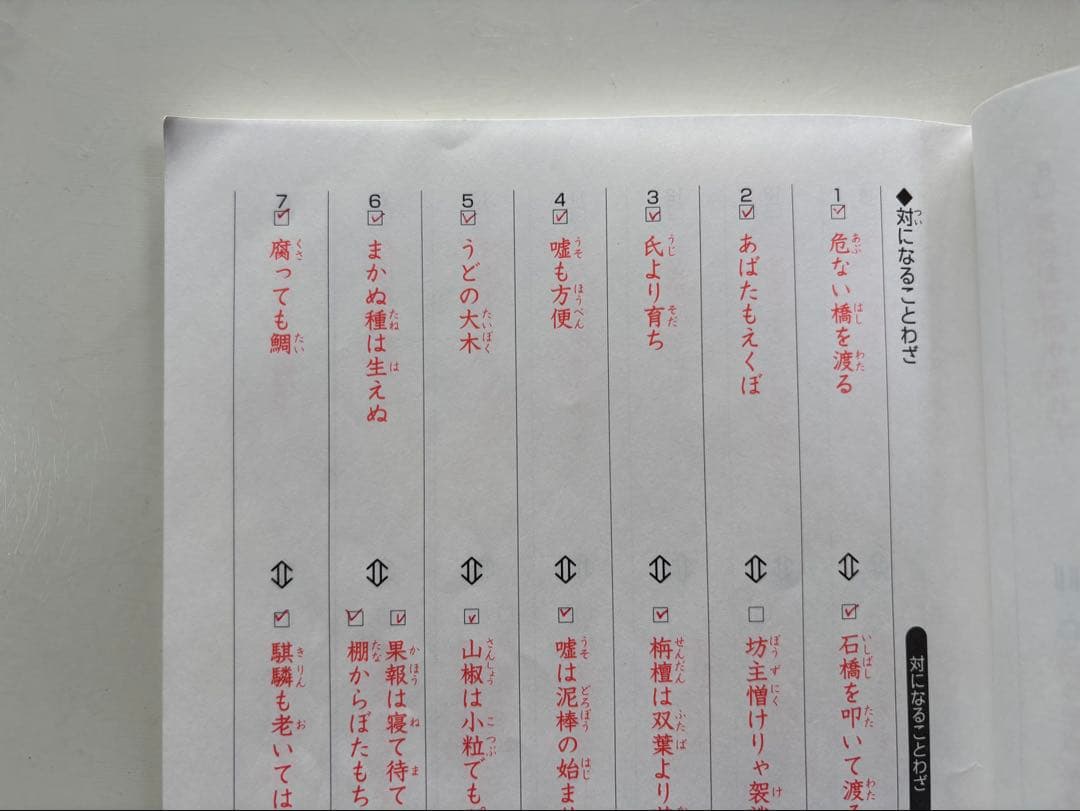 ◆対になることわざ
1 危ない橋を渡る
⇕
石橋を叩いて渡る
2 あばたもえくぼ
⇕
坊主憎けりゃ袈
3 氏より育ち
⇕
栴檀は双葉より
4 嘘も方便
⇕
嘘は泥棒の始ま
5 うどの大木
⇕
山椒は小粒でも
6 まかぬ種は生えぬ
⇕
果報は寝て待て
棚からぼたもち
7 腐っても鯛
⇕
騏驎も老いては
対になることわざ